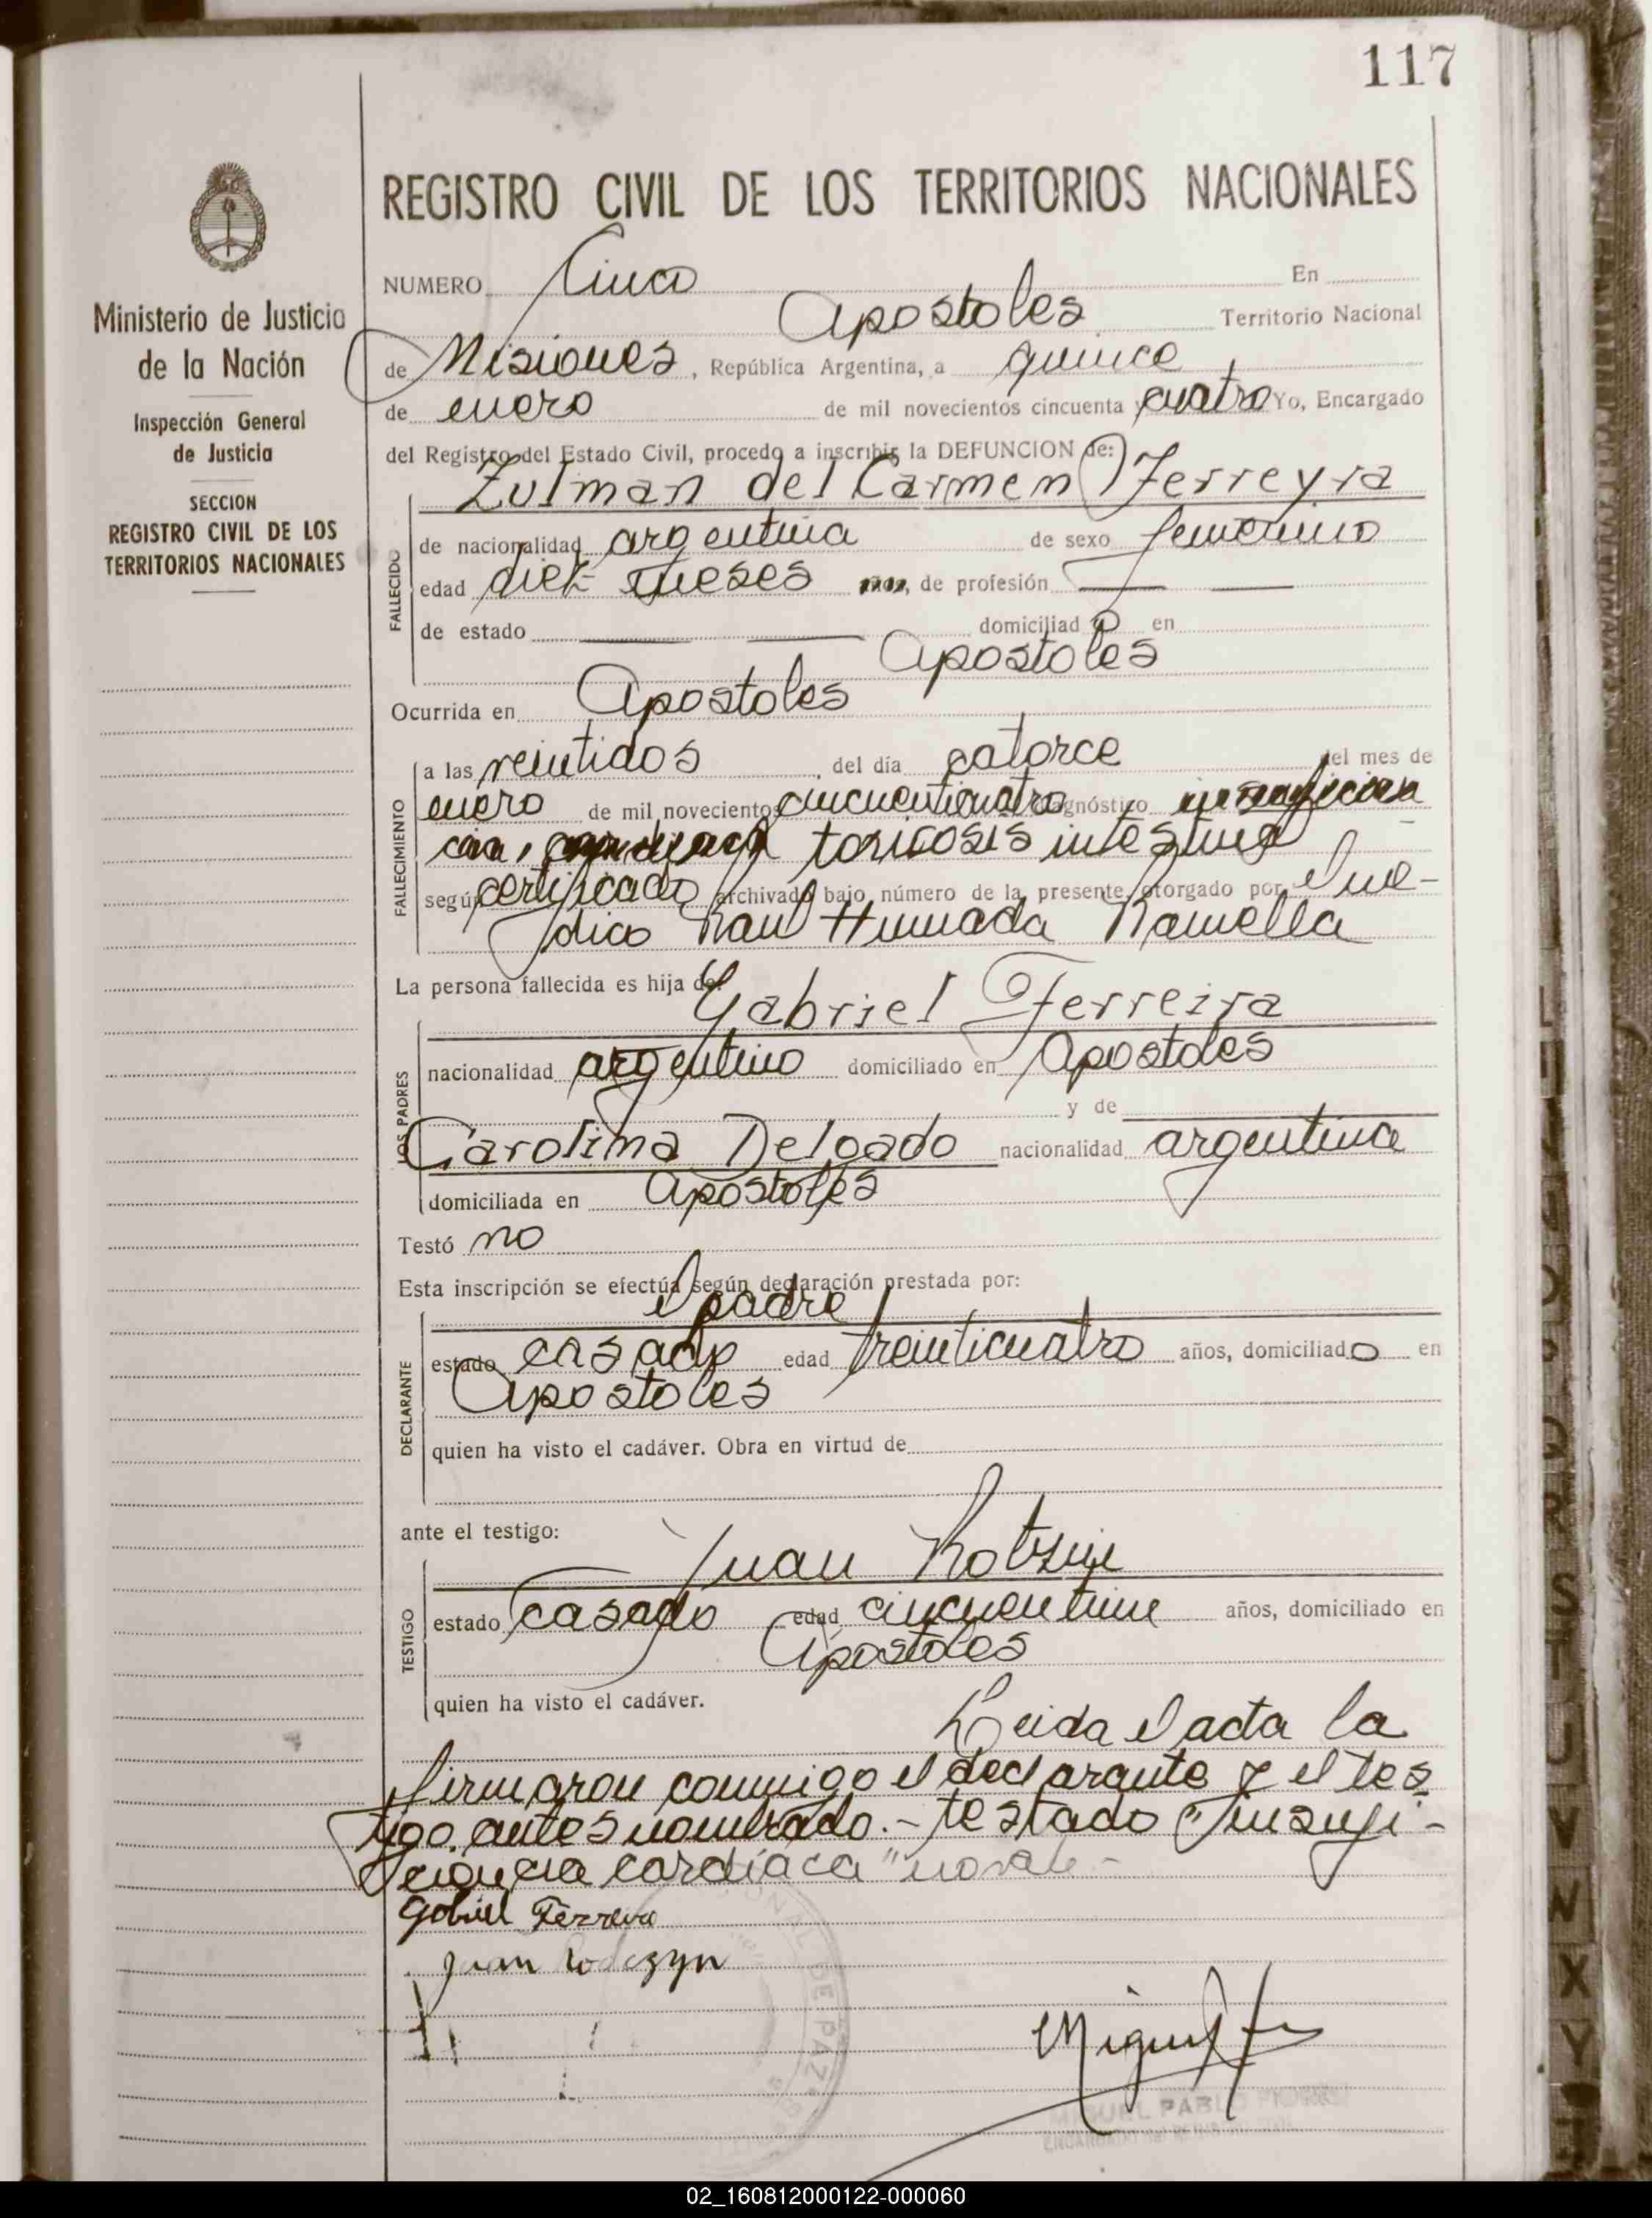 117
REGISTRO CIVIL DE LOS TERRITORIOS NACIONALES
Ministerio de Justicia
de la Nación
Inspección General
de Justicia
SECCION
REGISTRO CIVIL DE LOS
TERRITORIOS NACIONALES
NUMERO Cinco En
Apostoles Territorio Nacional
de Misiones, República Argentina, a quince
de enero de mil novecientos cincuenta y cuatro Yo, Encargado
del Registro del Estado Civil, procedo a inscribir la DEFUNCION de:
Zulman del Carmen Ferreyra
FALLECIDO
de nacionalidad argentina de sexo femenino
edad diez meses años, de profesión
de estado domiciliad o en
Apostoles
Ocurrida en Apostoles
FALLECIMIENTO
a las veintidos, del día catorce del mes de
enero de mil novecientos cincuenticuatro diagnóstico insuficien
cia, cardiaca toxicosis intestinal
según certificado archivado bajo número de la presente, otorgado por el me-
dico Raul Humada Ramella
La persona fallecida es hija de:
Gabriel Ferreira
LOS PADRES
nacionalidad argentino domiciliado en Apostoles
y de
Carolina Delgado nacionalidad argentina
domiciliada en Apostoles
Testó no
Esta inscripción se efectúa según declaración prestada por:
el padre
DECLARANTE
estado casado edad treinticuatro años, domiciliado en
Apostoles
quien ha visto el cadáver. Obra en virtud de
ante el testigo:
Juan
TESTIGO
estado casado edad años, domiciliado en
Apostoles
quien ha visto el cadáver.
Leida el acta la
firmaron conmigo el declarante y el tes
tigo antes nombrado.- testado "insufi-
ciencia cardíaca" no vale-
Gabriel Ferreira
Juan
DE PAZ
Miguel
MIGUEL PABLO
02_160812000122-000060